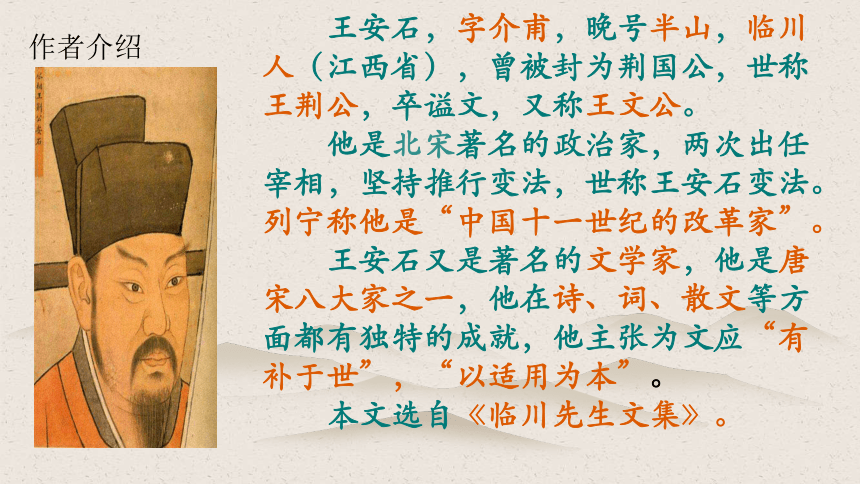 作者介绍
王安石，字介甫，晚号半山，临川
人（江西省），曾被封为荆国公，世称
王荆公，卒谥文，又称王文公。
他是北宋著名的政治家，两次出任
宰相，坚持推行变法，世称王安石变法。
列宁称他是“中国十一世纪的改革家”。
王安石又是著名的文学家，他是唐
宋八大家之一，他在诗、词、散文等方
面都有独特的成就，他主张为文应“有
补于世”，“以适用为本”。
本文选自《临川先生文集》。